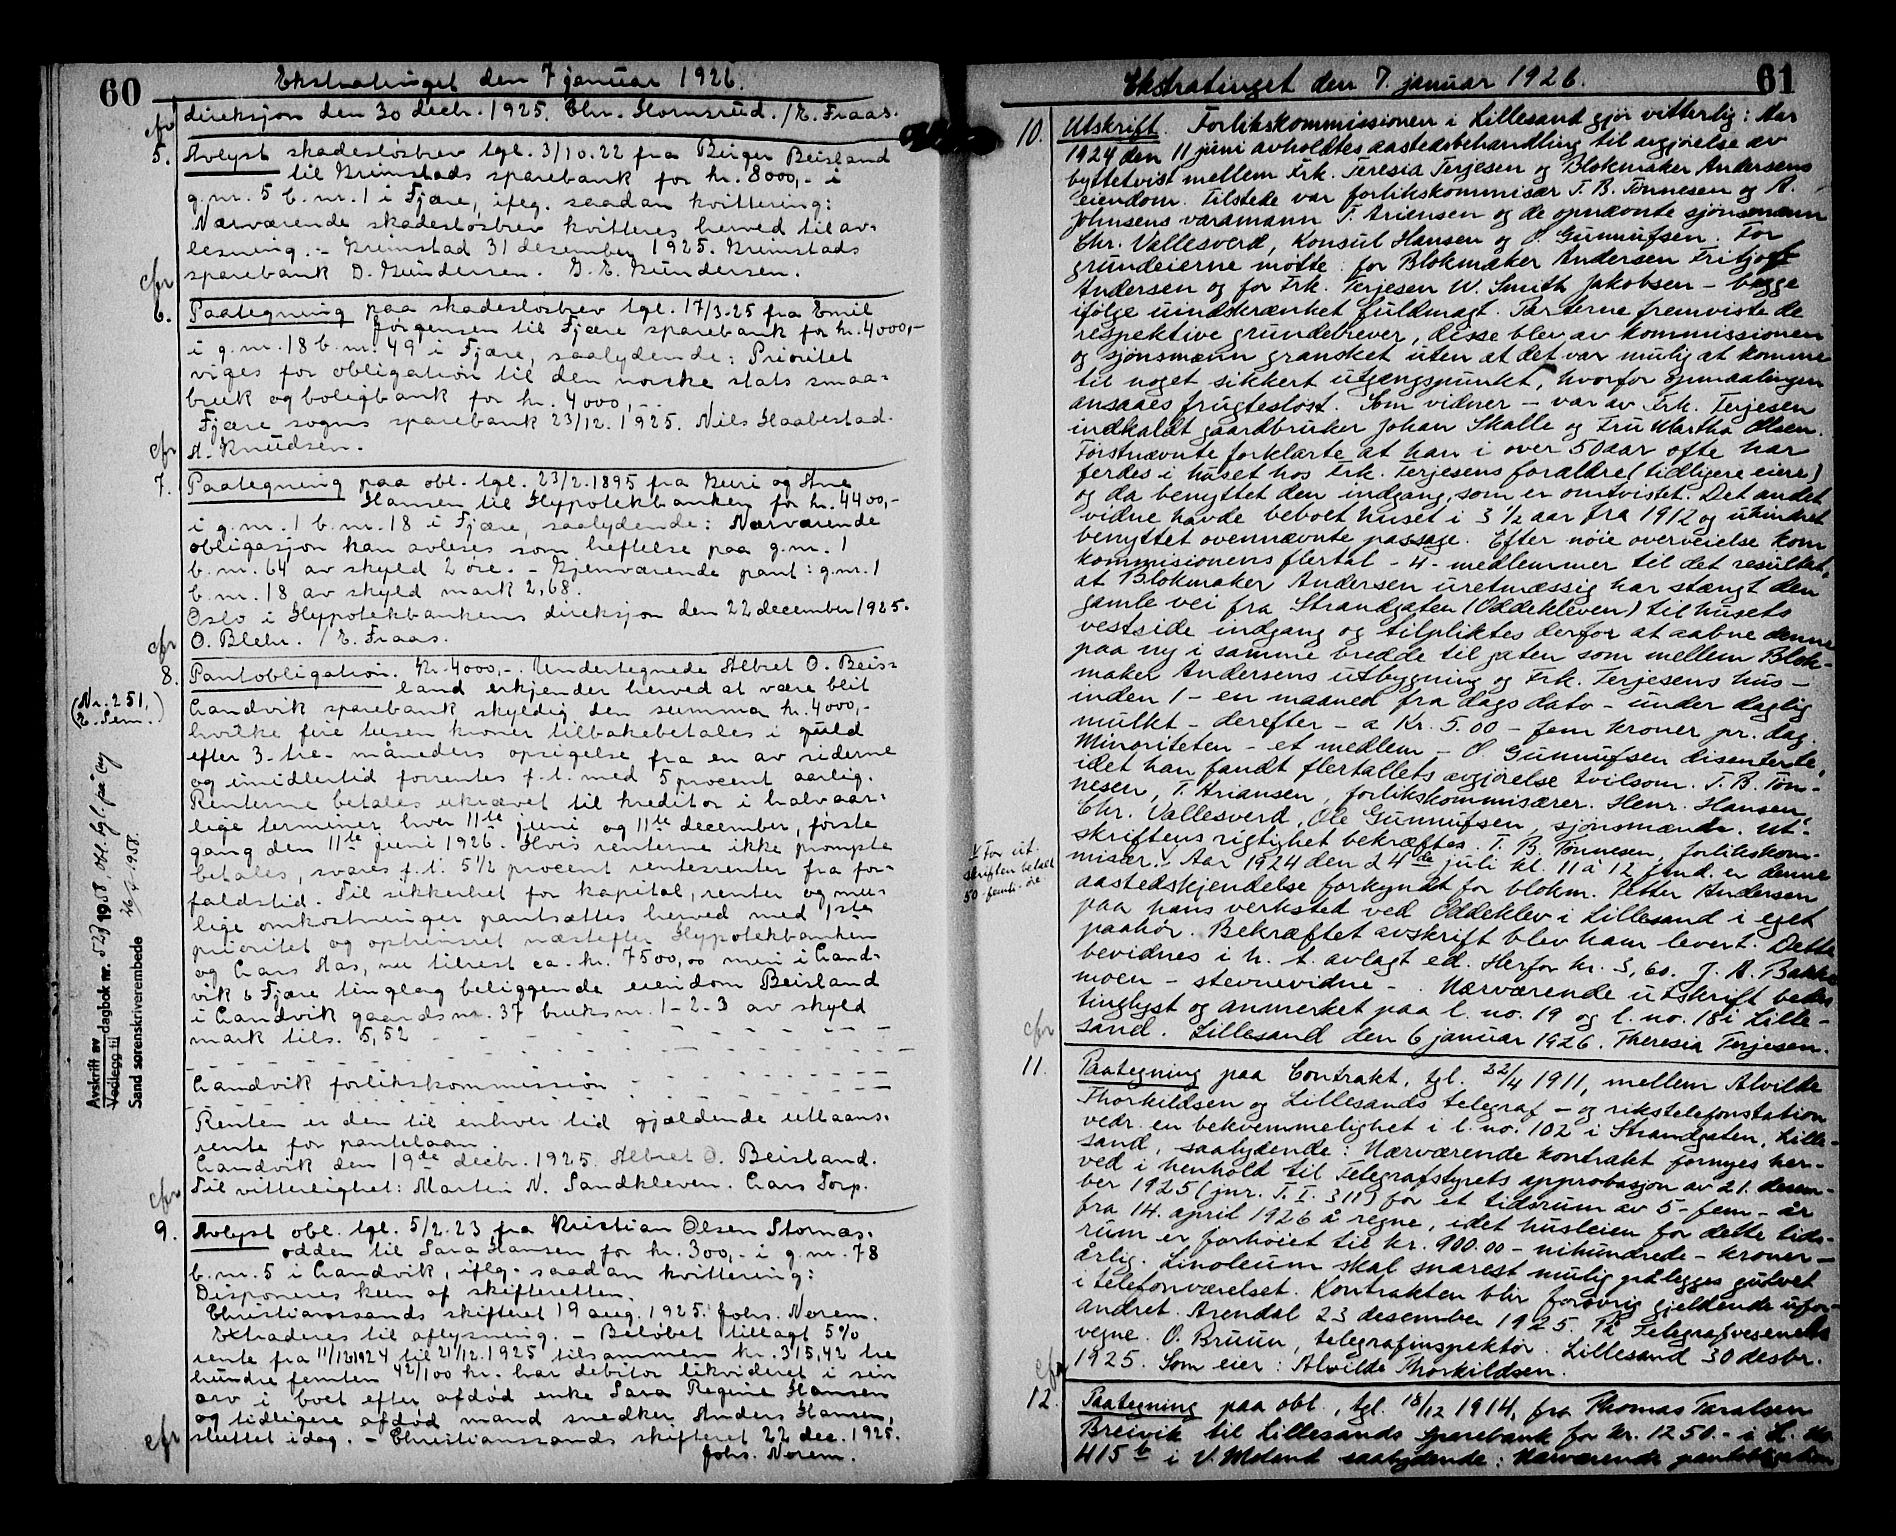 60
Ekstratinget den 7 januar 1926.
direksjon den 30 decbr. 1925. Chr. Hornsrud. /E. Fraas.
cfr
5. Avlyst skadesløsbrev tgl. 3/10.22 fra Birger Beisland
til Grimstads sparebank for kr. 8000,- i
g.nr. 5 b.nr. 1 i Fjære, iflg. saadan kvittering:
Nærværende skadesløsbrev kvitteres herved til av-
lesning. - Grimstad 31 desember 1925. Grimstads
sparebank D. Gundersen. G. E. Gundersen.
cfr
6. Paategning paa skadesløsbrev tgl. 17/3-25 fra Emil
Jørgensen til Fjære sparebank for kr. 4000,-
i g.nr. 18 b.nr. 49 i Fjære, saalydende: Prioritet
viges for obligation til den norske stats smaa-
bruk og boligbank for kr. 4000,-.
Fjære sogns sparebank 23/12. 1925. Nils Haabestad.
A. Knudsen.
cfr
7. Paategning paa obl. tgl. 23/2.1895 fra Guri og Ane
Hansen til Hypotekbanken for kr. 4400,-
i g.nr. 1 b.nr. 18 i Fjære, saalydende: Nærværende
obligasjon kan avleses som heftelse paa g.nr. 1
b.nr. 64 av skyld 2 øre. - Gjenværende pant: g.nr. 1
b.nr. 18 av skyld mark 2,68.
Oslo i Hypotekbankens direksjon den 22 december 1925.
O. Blehr. /E. Fraas.
cfr
8. Pantobligation. Kr. 4000,-. Undertegnede Albret O. Beis-
land erkjender herved at være blit
Landvik sparebank skyldig den summa kr. 4000,-
hvilke fire tusen kroner tilbakebetales i guld
efter 3-tre- måneders opsigelse fra en av siderne
og imidlertid forrentes f.t. med 5 procent aarlig.
Renterne betales ukrævet til kreditor i halvaar-
lige terminer hver 11te juni og 11te december, første
gang den 11te juni 1926. Hvis renterne ikke prompte
betales, svares f.t. 5 1/2 procent rentesrenter fra for-
faldstid. Til sikkerhet for kapital, renter og mu-
lige omkostninger pantsættes herved med 1ste
prioritet og optrinsret næstefter Hypotekbanken
og Lars Aas, nu tilrest ca. kr. 7500,00 min i Land-
vik & Fjære tinglag beliggende eiendom Beisland
i Landvik gaardsnr. 37 bruksnr. 1-2-3 av skyld
mark tils. 5,52 - - - - - - -
Landvik forlikskommission - - - - - -
Renten er den til enhver tid gjældende utlaans-
rente for pantelaan.
Landvik den 19de decbr. 1925. Albret O. Beisland.
Til vitterlighet: Martin N. Sandkleven. Lars Torp.
(Nr. 251,
E. Sem.)
Avskrift av
Vedlegg til dagbok nr. 523 1958 Obl. tgl. på ny
Sand sorenskriverembede 16/4-1958.
cfr
9. Avlyst obl. tgl. 5/2.23 fra Kristian Olsen Stornæs-
odden til Sara Hansen for kr. 300,- i g.nr. 78
b.nr. 5 i Landvik, iflg. saadan kvittering:
Disponeres kun af skifteretten.
Christianssands skifteret 19 aug. 1925. Johs. Norem.
Extraderes til aflysning. - Beløbet tillagt 5%
rente fra 11/12 1924 til 21/12.1925 tilsammen kr. 315,42 tre
hundre femten 42/100 kr. har debitor likvideret i sin
arv i boet efter afdød enke Sara Regine Hansen
og tidligere afdød mand snedker Anders Hansen,
sluttet idag. - Christianssands skifteret 22 dec. 1925.
Johs. Norem.
cfr
61
Ekstratinget den 7. januar 1926.
10. Utskrift. Forlikskommissionen i Lillesand gjør vitterlig: Aar
1924 den 11 juni avholdtes aastedsbehandling til avgjørelse av
byttetvist mellem Frk. Teresia Terjesen og Blokmaker Andersens
eiendom. Tilstede var forlikskommisær T. B. Tønnesen og A.
Johnsens varamann T. Ariansen og de opnævnte sjønsmænn
Chr. Vallesverd, Konsul Hansen og O. Gunnufsen. For
grundeierne møtte: for Blokmaker Andersen Fritjof
Andersen og for Frk. Terjesen W. Smith Jakobsen - begge
ifølge uindskrænket fuldmagt. Parterne fremviste de
respektive grundebrever, disse blev av kommissionen
og sjønsmænn gransket uten at det var mulig at komme
til noget sikkert utgangspunkt, hvorfor opmaalingen
ansaaes frugtesløst. Som vidner - var av Frk. Terjesen
indkaldt gaardbruker Johan Skalle og Fru Martha Olsen.
Førstnævnte forklarte at han i over 50 aar ofte har
ferdes i huset hos Frk. Terjesens forældre (tidligere eiere)
og da benyttet den indgang, som er omtvistet. Det andet
vidne havde beboet huset i 3 1/2 aar fra 1912 og uhindret
benyttet ovennævnte passage. Efter nøie overveielse kom
kommisionens flertal - 4 - medlemmer til det resultat,
at Blokmaker Andersen uretmæssig har stængt den
gamle vei fra Strandgaten (Oddekleven) til husets
vestside indgang og tilpliktes derfor at aabne denne
paa ny i samme bredde til gaten som mellem Blok-
maker Andersens utbygning og Frk. Terjesens hus -
inden 1 - en maaned fra dags dato - under daglig
mulkt - derefter - a Kr. 5.00 - fem kroner pr. dag.
Minoriteten - et medlem - O. Gunnufsen disenterte,
idet han fandt flertallets avgjørelse tvilsom. T. B. Tøn-
nesen, T. Ariansen, forlikskommisærer. Henr. Hansen,
Chr. Vallesverd, Ole Gunnufsen, sjønsmænde. Ut-
skriftens rigtighet bekræftes. T. B. Tønnesen, forlikskom-
misær. Aar 1924 den 24de juli kl. 11 à 12 fmd. er denne
aastedskjendelse forkyndt for blokm. Petter Andersen
paa hans verksted ved Oddeklev i Lillesand i eget
paahør. Bekræftet avskrift blev ham levert. Dette
bevidnes i h. t. avlagt ed. Herfor kr. 3,60. J. A. Bakke-
moen - stevnevidne -. Nærværende utskrift bedes
tinglyst og anmerket paa l. no. 19 og l. no. 18 i Lille-
sand. Lillesand den 6 januar 1926. Theresia Terjesen.
x For ut-
skriften betalt
50 -femti- øre
cfr
11. Paategning paa Contrakt, tgl. 22/4 1911, mellem Alvilde
Thorkildsen og Lillesands telegraf - og rikstelefonstation
vedr. en bekvemmelighet i l. no. 102 i Strandgaten, Lille-
sand, saalydende: Nærværende kontrakt fornyes her-
ved i henhold til Telegrafstyrets approbasjon av 21. desem-
ber 1925 (jnr. T. I. 311) for et tidsrum av 5 - fem - år
fra 14. april 1926 å regne, idet husleien for dette tids-
rum er forhøiet til kr. 900.00 - nihundrede - kroner -
årlig. Linoleum skal snarest mulig pålegges gulvet
i telefonværelset. Kontrakten blir forøvrig gjeldende ufor-
andret. Arendal 23 desember 1925. På Telegrafvesenets
vegne. O. Bruun, telegrafinspektør. Lillesand 30 desbr.
1925. Som eier: Alvilde Thorkildsen.
cfr
12. Paategning paa obl., tgl. 18/12 1914, fra Thomas Taralsen
Breivik til Lillesands Sparebank for kr. 1250.- i L. no
415 b i V. Moland saalydende: Nærværende pantobligation